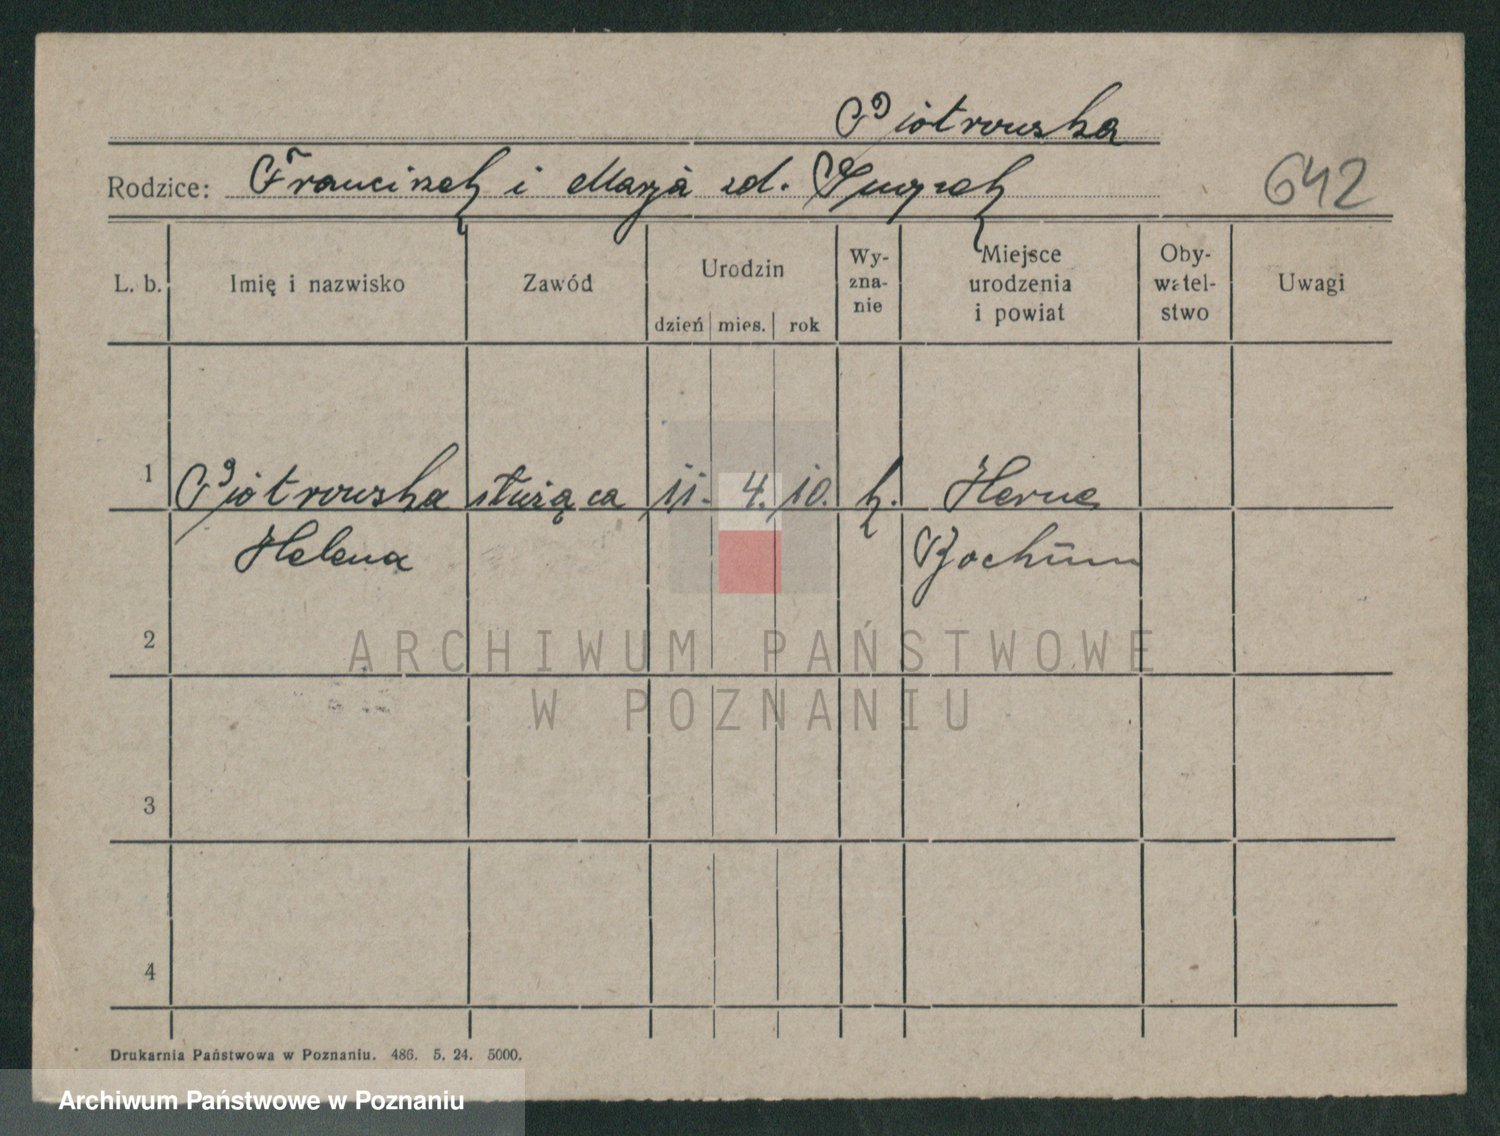 Piotrowska
Rodzice: Franciszek i Marja zd.
642
L. b. Imię i nazwisko Zawód Urodzin dzień mies. rok Wy-zna-nie Miejsce urodzenia i powiat Oby-watel-stwo Uwagi
1 Piotrowska służąca 11. 4. 10. k. Herne
Helena Bochum
2
3
4
ARCHIWUM PAŃSTWOWE
W POZNANIU
Drukarnia Państwowa w Poznaniu. 486. 5. 24. 5000.
Archiwum Państwowe w Poznaniu